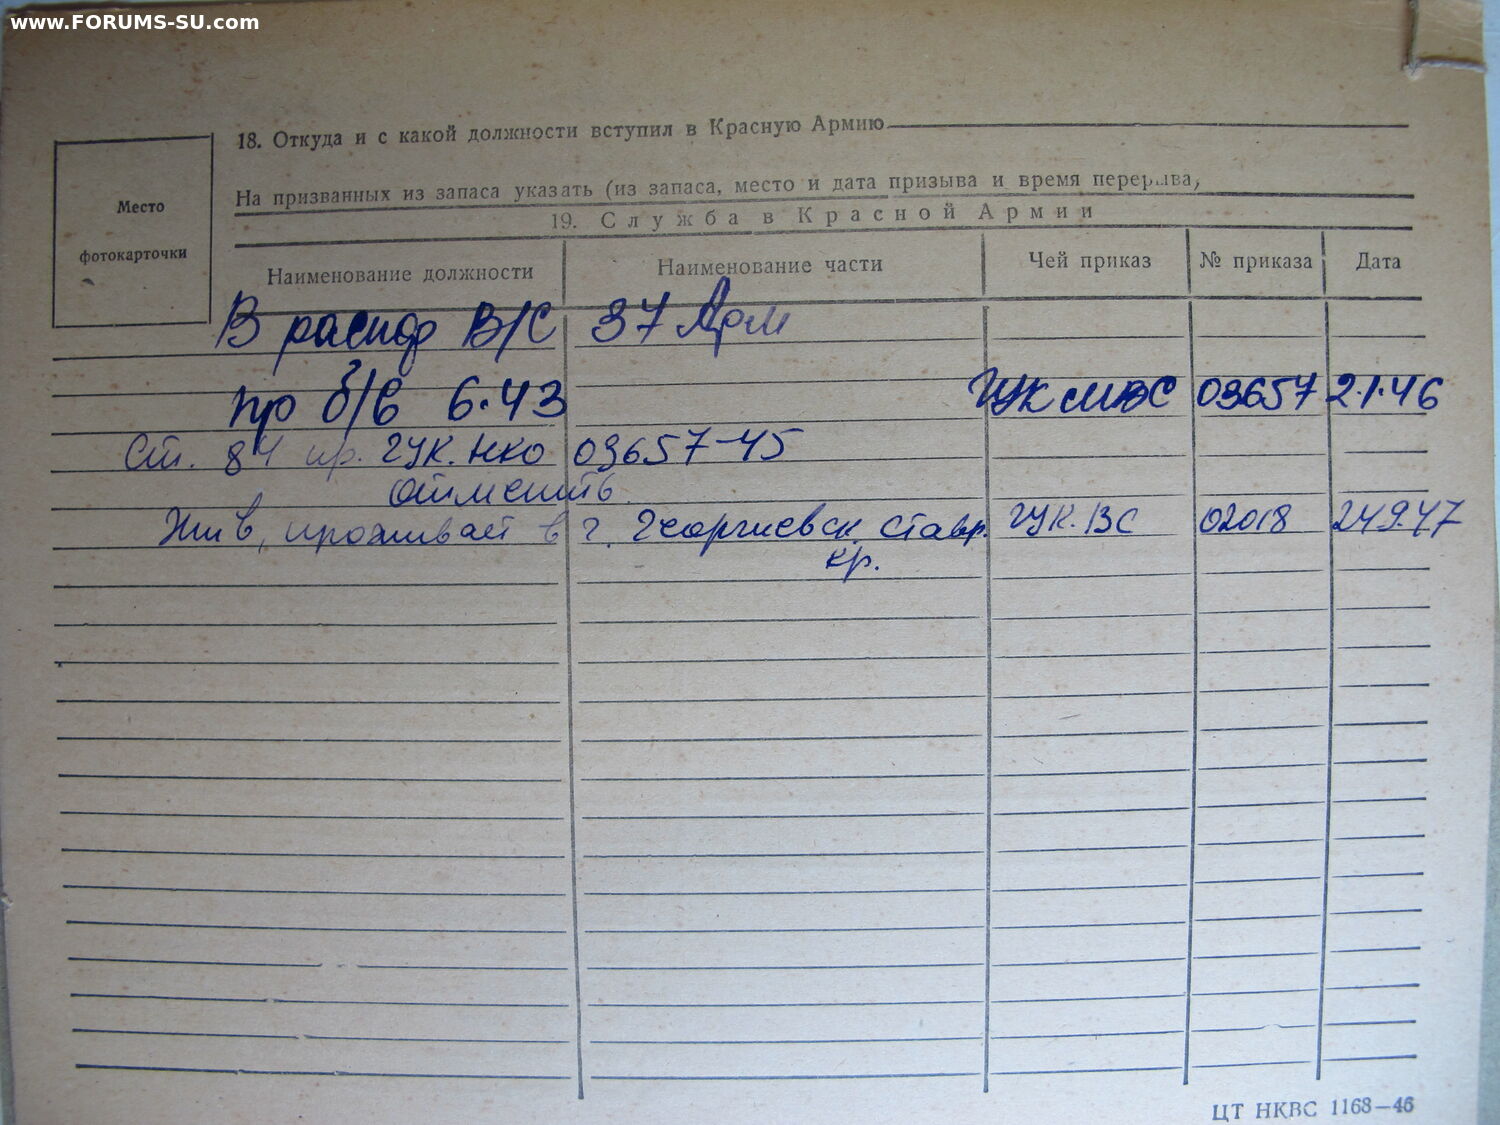 www.FORUMS-SU.com
18. Откуда и с какой должности вступил в Красную Армию
На призванных из запаса указать (из запаса, место и дата призыва и время перерыва)
Место
фотокарточки
19. Служба в Красной Армии
Наименование должности Наименование части Чей приказ № приказа Дата
В распор В/С 37 Арм
пр б/в 6.43 ГУК МВС 03657 2.1.46
Ст. 84 пр. ГУК. НКО 03657-45
отменить
Жив, проживает в г. Георгиевск. Ставр. ГУК. ВС 02018 24.9.47
кр.
ЦТ НКВС 1168—46